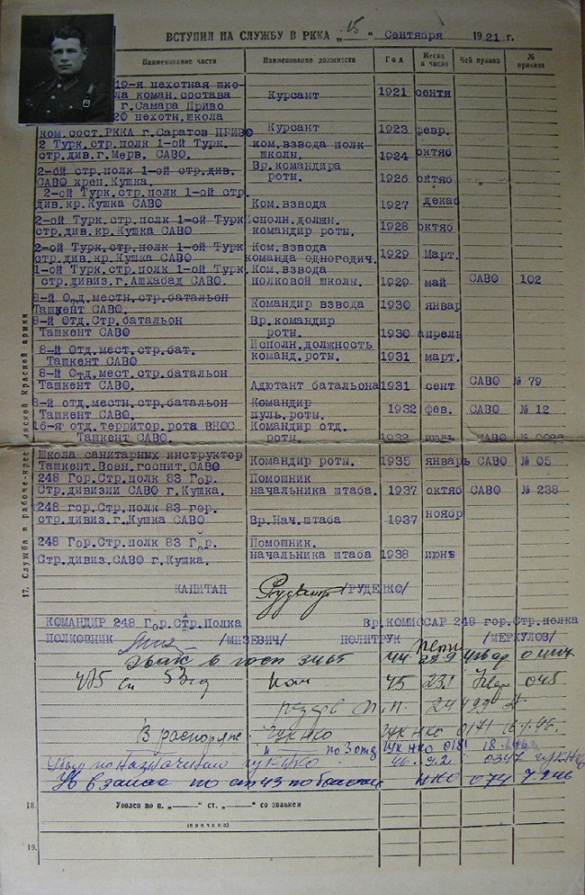 ВСТУПИЛ НА СЛУЖБУ В РККА „15“ Сентября 1921 г.
Наименование части Наименование должности Год Месяц и число Чей приказ № приказа
19-я пехотная шко-
ла коман.состава
г.Самара Приво Курсант 1921 сентя
20 пехотн.школа
ком.сост.РККА г.Саратов ПРИВО Курсант 1923 февр.
2 Турк.стр.полк 1-ой Турк. ком.взвода полк
стр.див.г.Мерв. САВО. школн. 1924 октяб
2-ой стр.полк 1-ой стр.див. Вр.командира
САВО креп.Кушка. роты. 1926
2-ой Турк.стр.полк 1-ой стр.
див.кр.Кушка САВО Ком.взвода 1927 декаб
2-ой Турк.стр.полк 1-ой Турк Исполн.должн.
стр.див.кр.Кушка САВО командир роты. 1928 октяб
2-ой Турк.стр.полк 1-ой Турк. Ком.взвода
стр.див.кр.Кушка САВО команда одногодич. 1929 Март.
1-ой Турк.стр.полк 1-ой Турк. Ком.взвода
стр.дивиз.г.Ашхабад САВО. полковой школн. 1929 май САВО 102
8-й Отд.местн.стр.батальон
Ташкент САВО. Командир взвода 1930 январ
8-й Отд.Стр.батальон Вр.командир
Ташкент САВО роты. 1930 апрель
8-й Отд.мест.стр.бат. Исполн.должность
Ташкент САВО. команд.роты. 1931 март.
8-й Отд.мест.стр.батальон
Ташкент САВО. Адютант батальона 1931 сент САВО № 79
8-й отд.местн.стр.батальон Командир
Ташкент САВО. пуль.роты. 1932 фев. САВО № 12
16-я отд.территор.рота ВНОС Командир отд.
Ташкент САВО. роты. 1932 июль САВО
Школа санитарных инструктор
Ташкент.Воен.госпит.САВО Командир роты. 1935 январь САВО № 05
248 Гор.Стр.полк 83 Гор. Помошник
Стр.дивизии САВО г.Кушка. начальника штаба. 1937 октяб САВО № 238
248 гор.стр.полк 83 гор.
стр.дивиз.г.Кушка САВО Вр.Нач.штаба 1937 ноябр
248 Гор.Стр.полк 83 Гор. Помошник.
Стр.дивиз.САВО г.Кушка. начальника штаба 1938 июнь
КАПИТАН /РУДЕНКО/
КОМАНДИР 248 Гор.Стр.Полка Вр.КОМИССАР 248 гор.Стр.полка
ПОЛКОВНИК /МИЗЕВИЧ/ ПОЛИТРУК /МЕРКУЛОВ/
в госп 44
475 сп 53 сд 45 23.1 045
24499
В распоряж. ГУК НКО ГУК НКО 0171 16.1.46.
по 3 отд ГУК НКО 018 18.1.46
по назначению ГУК НКО 46. 9.2 0347 ГУК НКО
Ув в запас по ст 43 по болезни НКО 074
17. Служба в рабоче-крестьянской Красной армии
18. Уволен по п. „____“ ст. „____“ со знаком
(причина)
19.